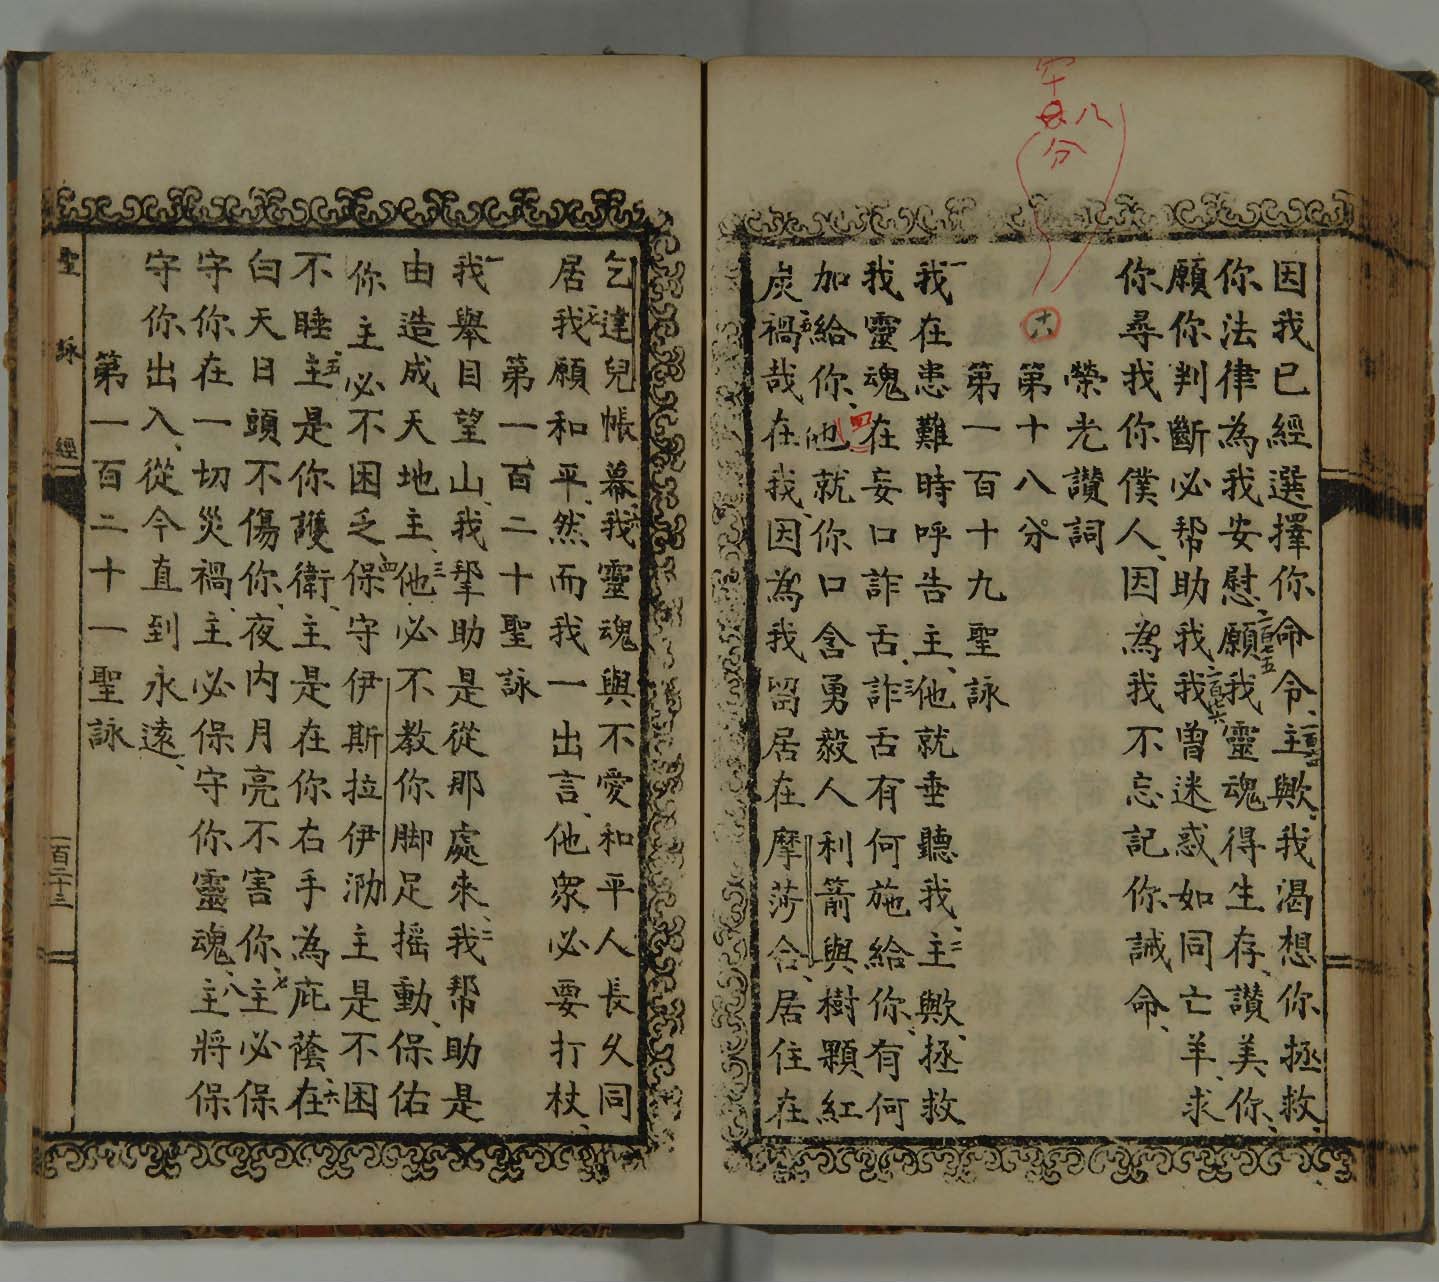 因我已經選擇你命令、主歟、我渴想你拯救、
你法律為我安慰願我靈魂得生存、讚美你、
願你判斷必帮助我我曾迷惑如同亡羊、求
你尋我你僕人、因為我不忘記你誡命、
榮光讚詞
第十八分
第一百十九聖詠
一我在患難時呼告主、他就垂聽我、二主歟、拯救
我靈魂在妄口詐舌、三詐舌有何施給你、有何
加給你、四他就你口含勇毅人利箭與樹顆紅
炭五禍哉在我、因為我留居在摩莎合、居住在
乞達兒帳幕、六我靈魂與不愛和平人長久同
居、七我願和平、然而我一出言、他衆必要打杖、
第一百二十聖詠
一我舉目望山、我帮助是從那處來、二我帮助是
由造成天地主、三他必不教你脚足摇動、保佑
你主必不困乏四保守伊斯拉伊泐主是不困
不睡五主是你護衛、主是在你右手為庇蔭、六在
白天日頭不傷你、夜内月亮不害你、七主必保
守你在一切災禍、主必保守你靈魂、八主將保
守你出入、從今直到永遠、
第一百二十一聖詠
聖詠經
一百二十三
十八